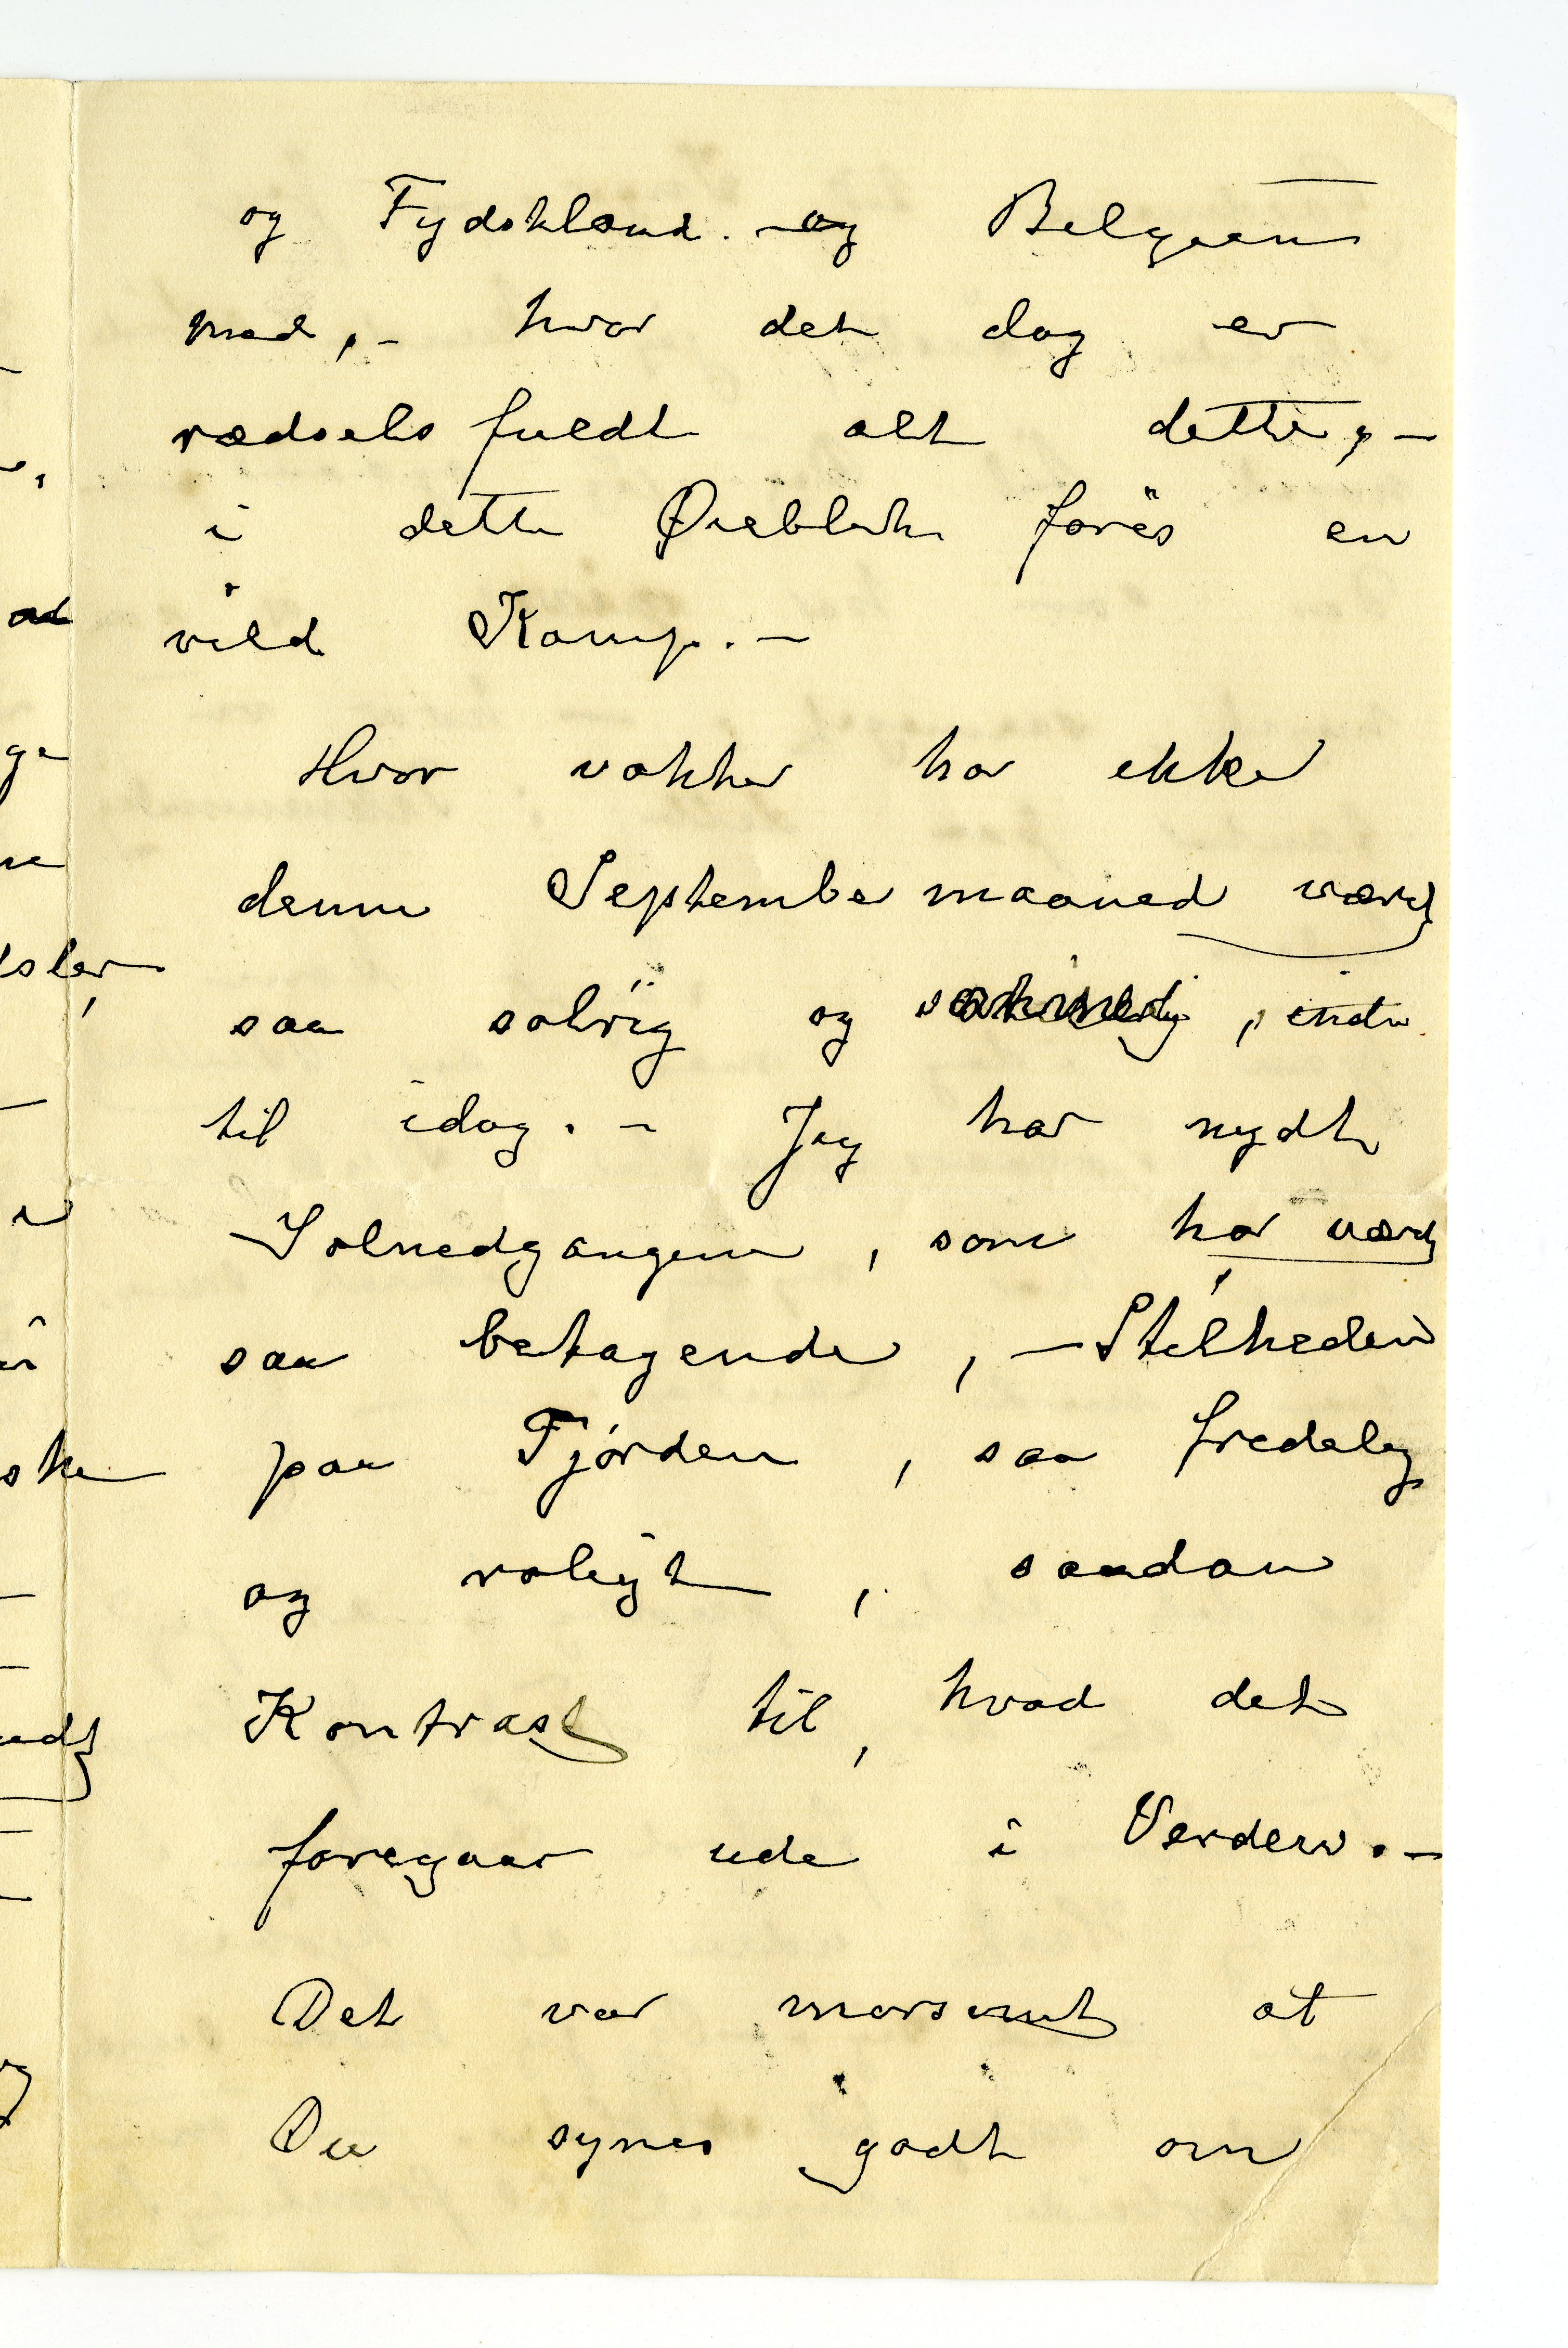 og Tydskland. - og Belgien
med, - hvor det dog er
rædselsfuldt alt dette, -
i dette Øieblik föres en
vild Kamp. -
Hvor vakker har ikke
denne Septembermaaned vært
saa solrig og, inde
til idag. - Jeg har nydt
Solnedgangene, som har vært
saa betagende, - Stilheden
paa Fjorden, saa fredelig
og roligt, saadan
Kontrast til, hvad det
foregaar ude i Verden. -
Det var morsomt at
Du synes godt om